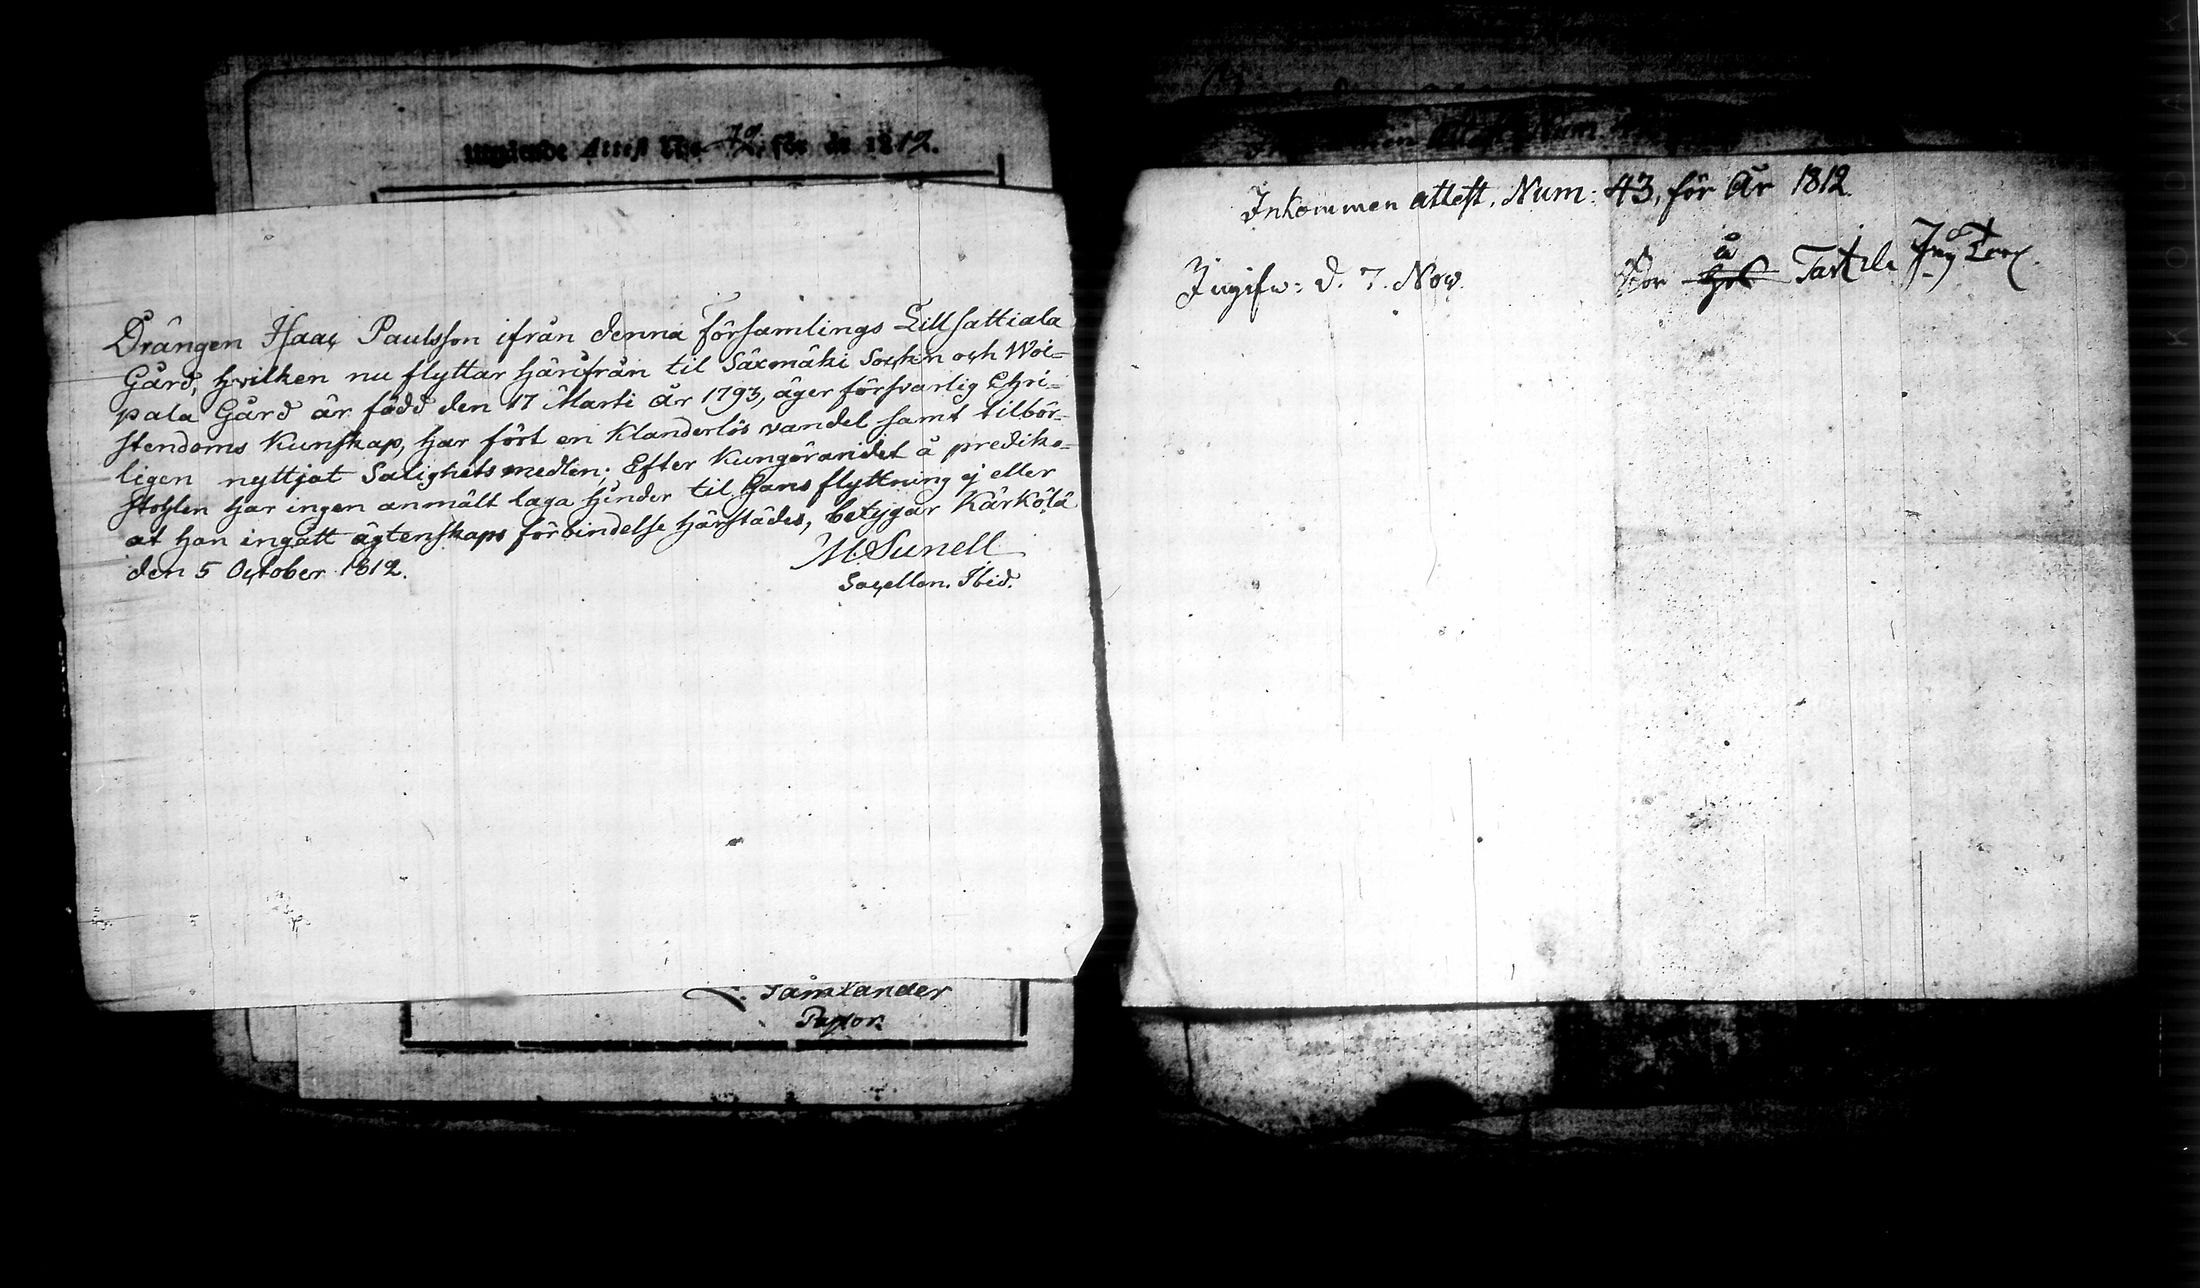 Attest No 42. för år 1812.
Drängen Isaac Paulsson ifrån denna Församlings Lill Sattiala
Gård, hvilken nu flyttar härifrån til Säxmäki Sockn och Woi=
pala Gård är född den 17 Marti år 1793, äger försvarlig Chri=
stendoms Kunskap, har fört en Klanderlös vandel samt tilbör=
ligen nyttjat Salighetsmedlen; Efter Kungörandet å prediko=
stohlen har ingen anmält laga hinder til hans flyttning ej eller
at han ingått ägtenskaps förbindelse härstädes, betygar Kärkölä
den 5 October 1812.
M. Sunell
Sacellan. Ibid.
Pastor.
Inkommen attest. Num: 43, för År 1812
Ingifv: d. 7. Nov.
å